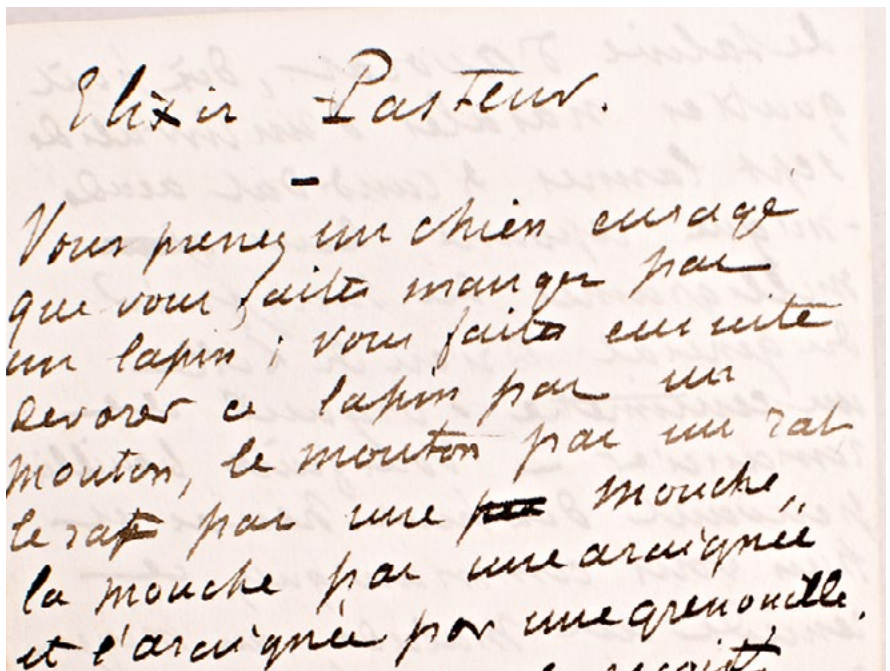 Elixir Pasteur.
Vous prenez un chien enragé
que vous faites manger par
un lapin ; vous faites ensuite
devorer ce lapin par un
mouton, le mouton par un rat
le rat par une mouche,
la mouche par une araignée
et l'araignée par une grenouille.